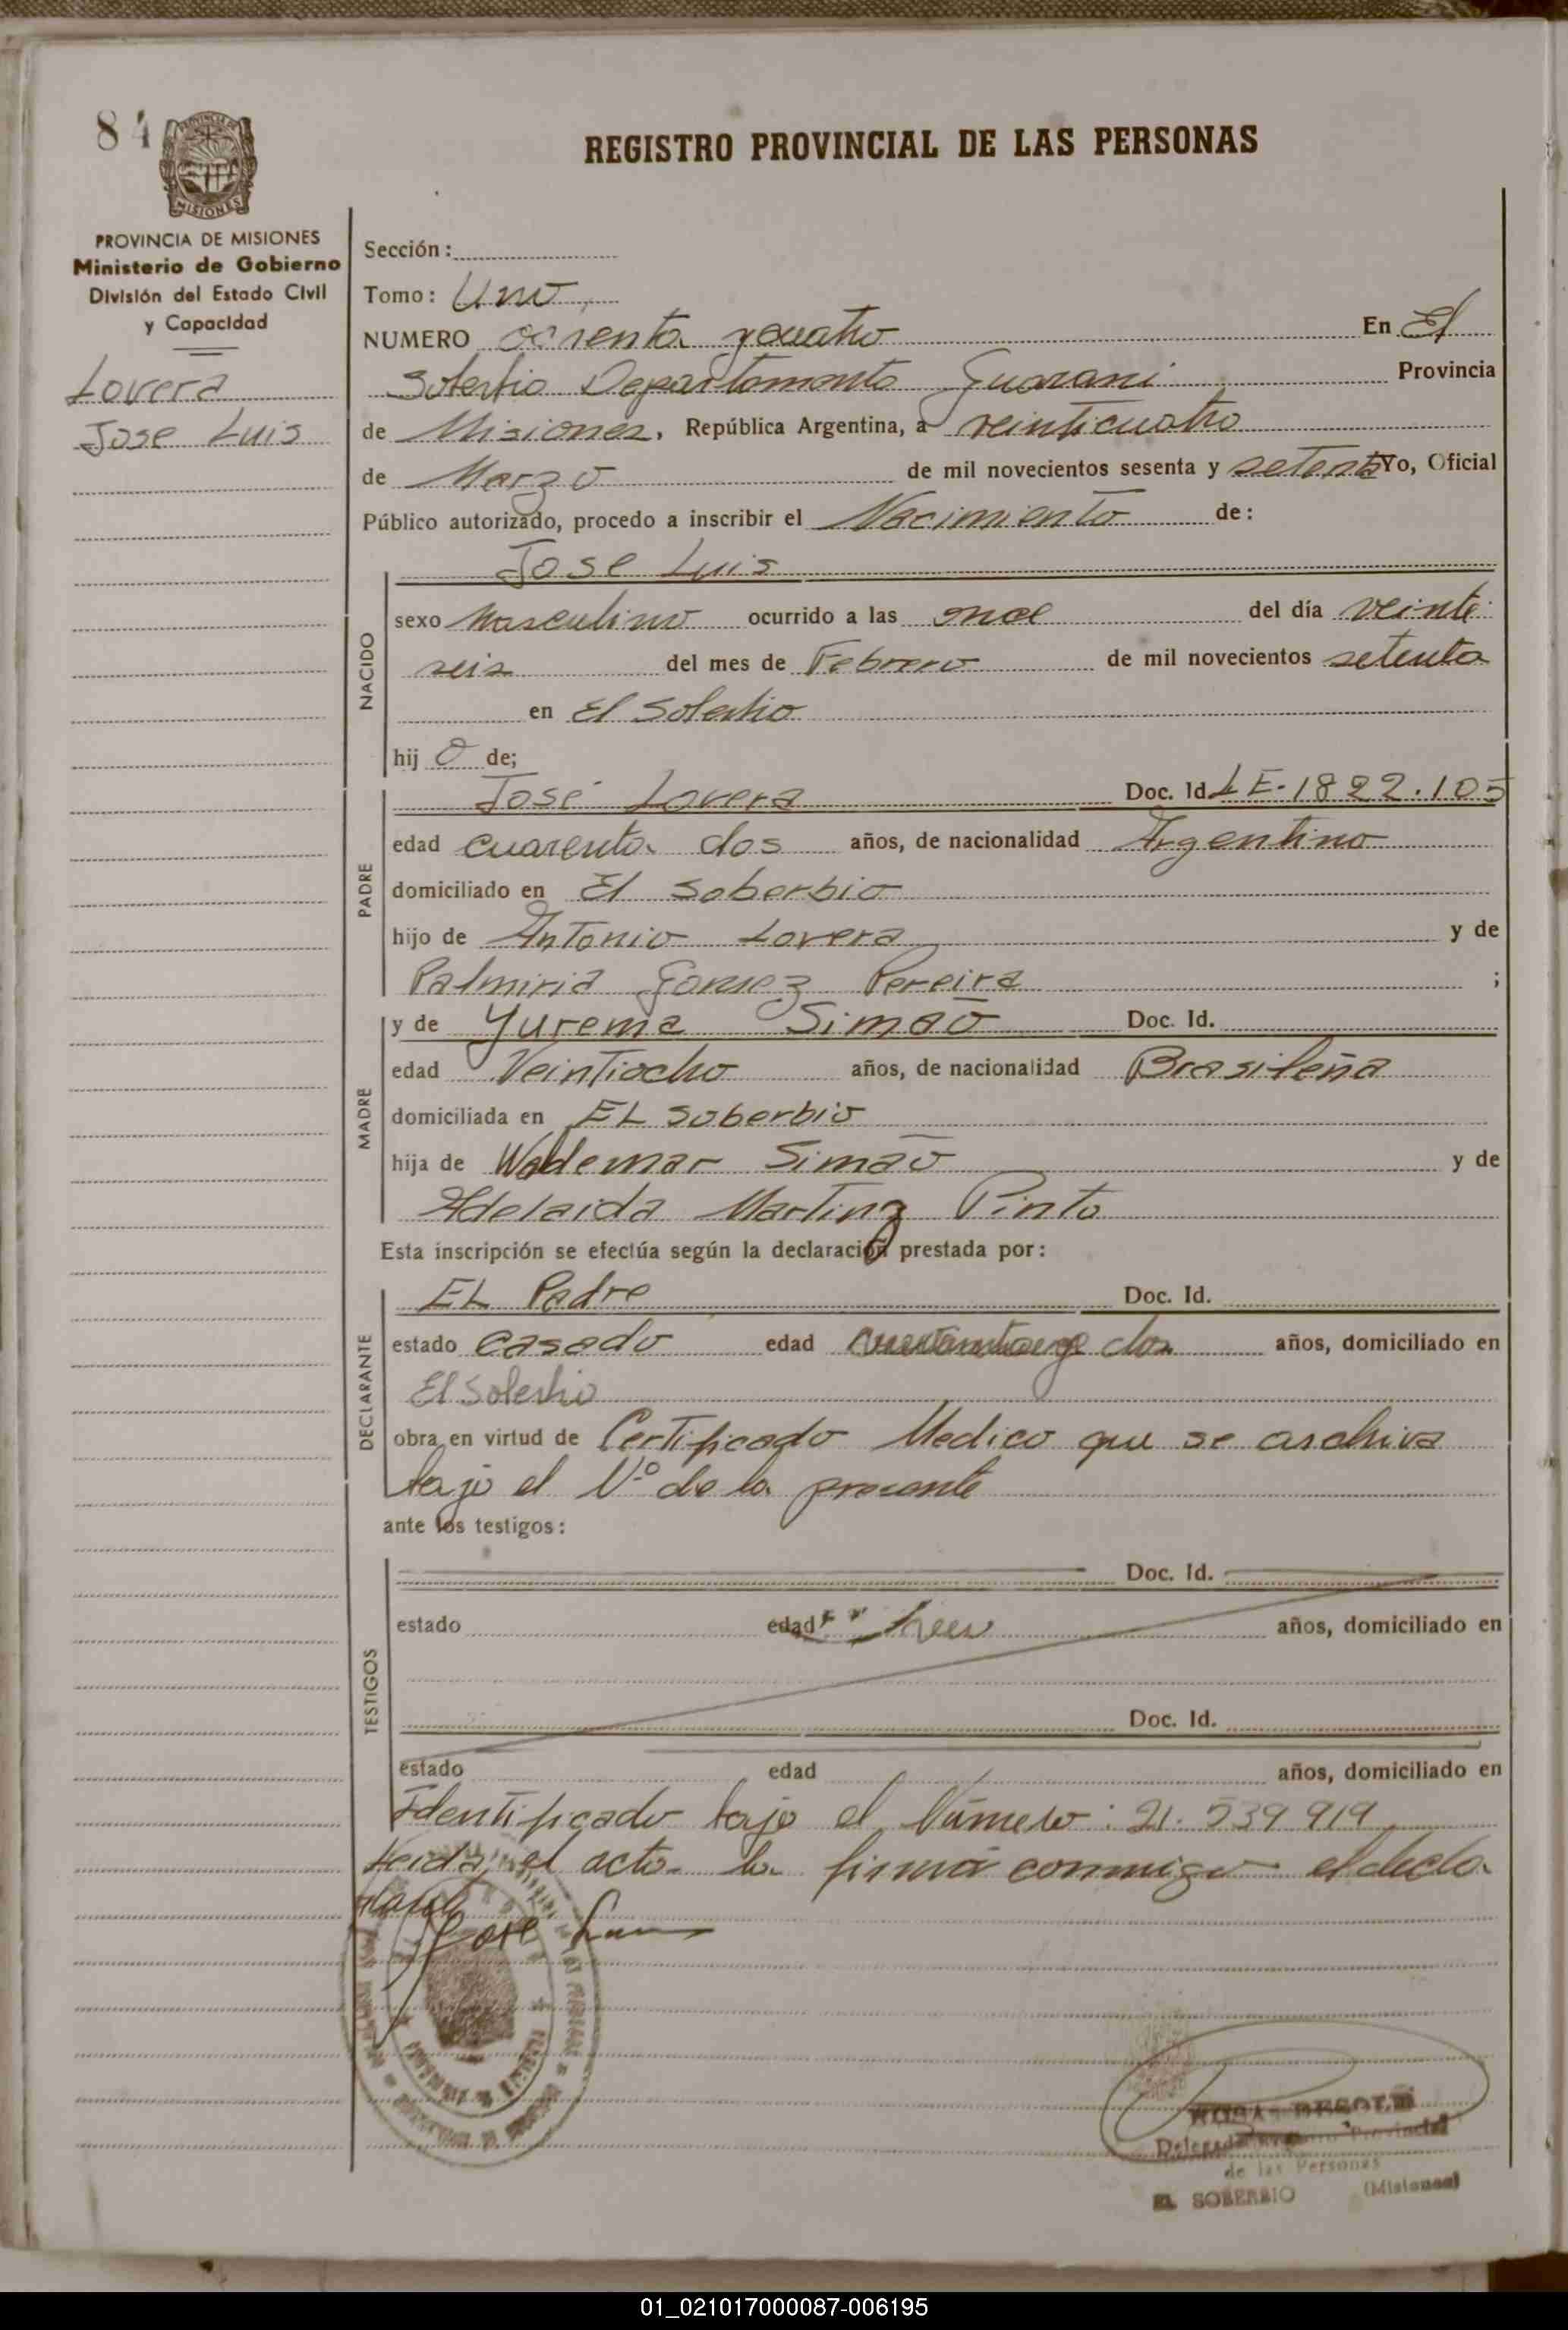 84
REGISTRO PROVINCIAL DE LAS PERSONAS
MISIONES
PROVINCIA DE MISIONES
Ministerio de Gobierno
División del Estado Civil
y Capacidad
Lovera
Jose Luis
Sección:
Tomo: Uno
NUMERO ochenta y cuatro En El
Soberbio Departamento Guarani Provincia
de Misiones, República Argentina, a veinticuatro
de Marzo de mil novecientos sesenta y setenta Yo, Oficial
Público autorizado, procedo a inscribir el Nacimiento de:
Jose Luis
NACIDO
sexo Masculino ocurrido a las once del día veinte
seis del mes de Febrero de mil novecientos setenta
en El Soberbio
hij o de;
PADRE
José Lovera Doc. Id. LE-1822.105
edad cuarenta dos años, de nacionalidad Argentino
domiciliado en El Soberbio
hijo de Antonio Lovera y de
Palmiria Gomez Pereira ;
MADRE
y de Yurema Simaõ Doc. Id.
edad Veintiocho años, de nacionalidad Brasileña
domiciliada en EL Soberbio
hija de Waldemar Simaõ y de
Adelaida Martinz Pinto
Esta inscripción se efectúa según la declaración prestada por:
DECLARANTE
EL Padre Doc. Id.
estado Casado edad dos años, domiciliado en
El Soberbio
obra en virtud de Certificado Medico que se archiva
bajo el Nº de la presente
ante los testigos:
TESTIGOS
Doc. Id.
estado edad años, domiciliado en
Doc. Id.
estado edad años, domiciliado en
Identificado bajo el Número: 21.539919
Leida el acta la firma conmigo el decla
rante
José
Delegado Provincial
de las Personas
EL SOBERBIO (Misiones)
01_021017000087-006195